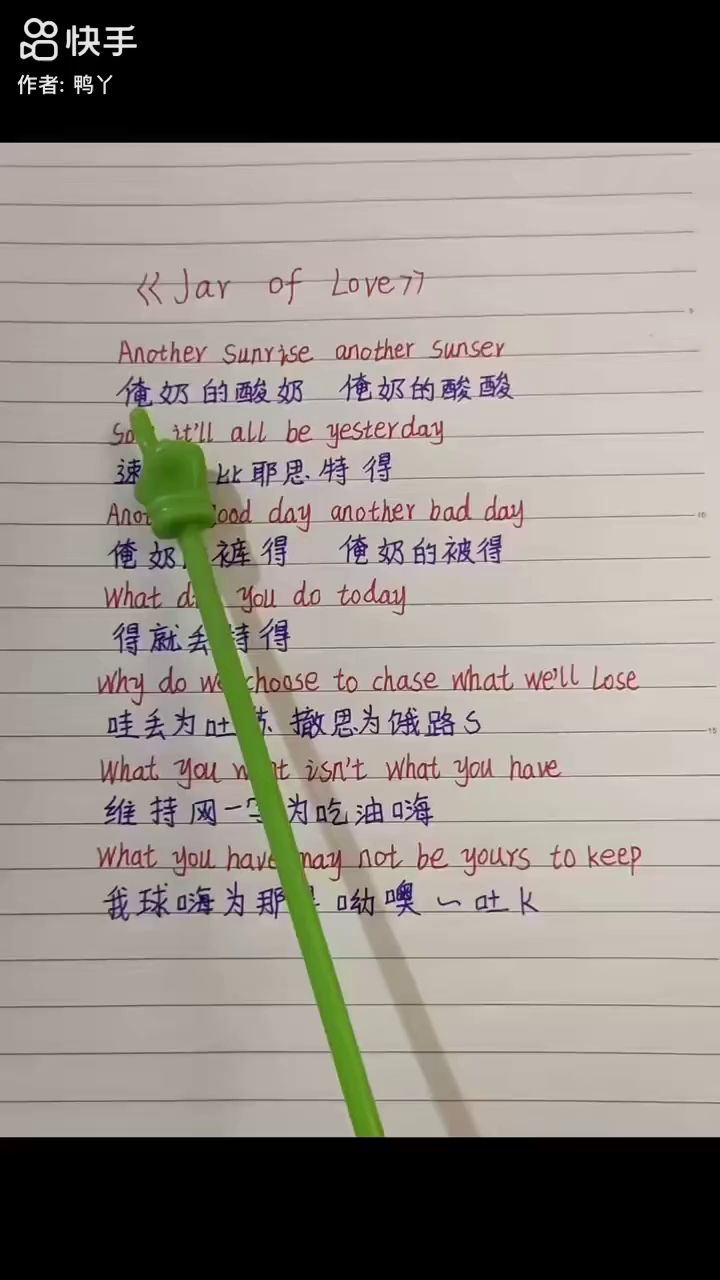 快手
作者: 鸭丫
《Jar of Love》
Another sunrise another sunser
俺奶的酸奶 俺奶的酸酸
it'll all be yesterday
速 比耶思特得
good day another bad day
俺奶 裤得 俺奶的被得
What you do today
得就丢特得
Why do we choose to chase what we'll lose
哇丢为吐 撤思为饿路S
What you isn't what you have
维持网一 为吃油嗨
What you have may not be yours to keep
我球嗨为那 呦噢～吐K